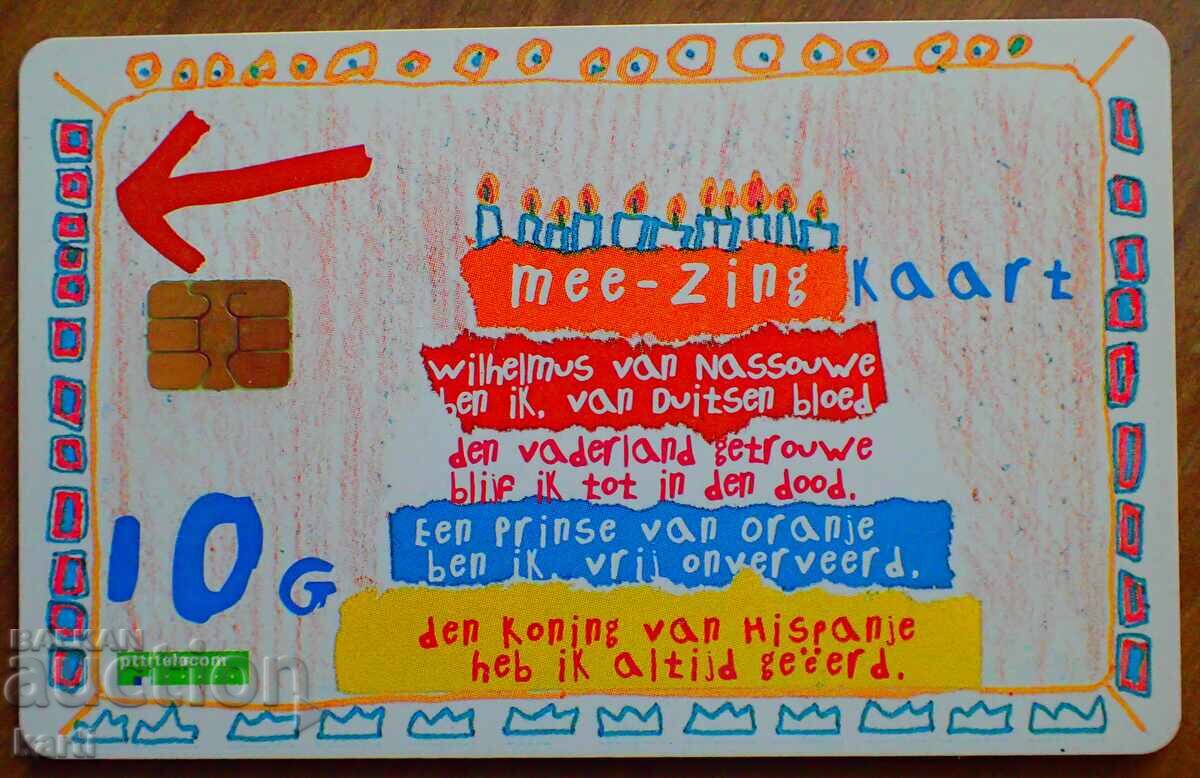 mee-zing Kaart
Wilhelmus van Nassouwe
ben ik, van Duitsen bloed
den vaderland getrouwe
blijf ik tot in den dood.
Een Prinse van Oranje
ben ik, vrij onverveerd,
den Koning van Hispanje
heb ik altijd geëerd.
10 G
ptt telecom
BALKAN
auction
karti